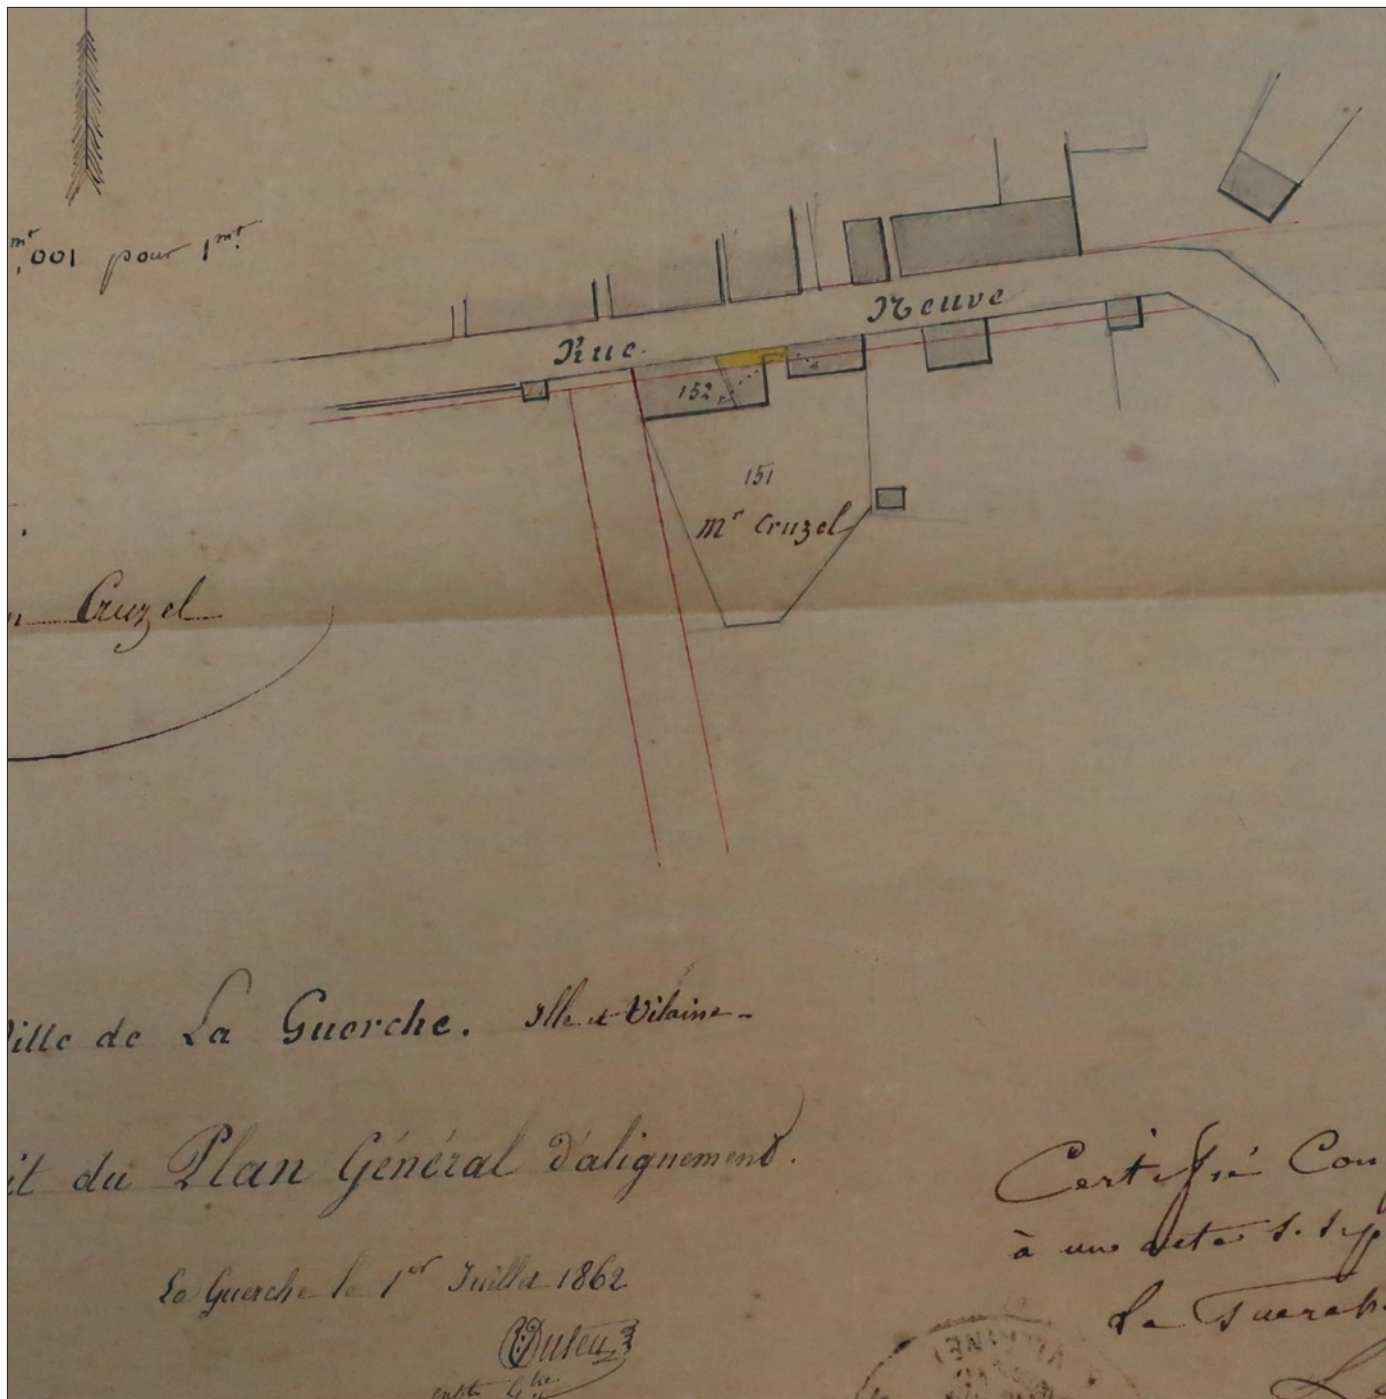 001 pour 1 mt.
Rue Neuve
152
151
Mr Cruzel
Cruzel
ille de La Guerche. Ille et Vilaine.
it du Plan Général d'alignement.
La Guerche le 1er Juillet 1862
Certifié Con
à un acte s.
La Guerch